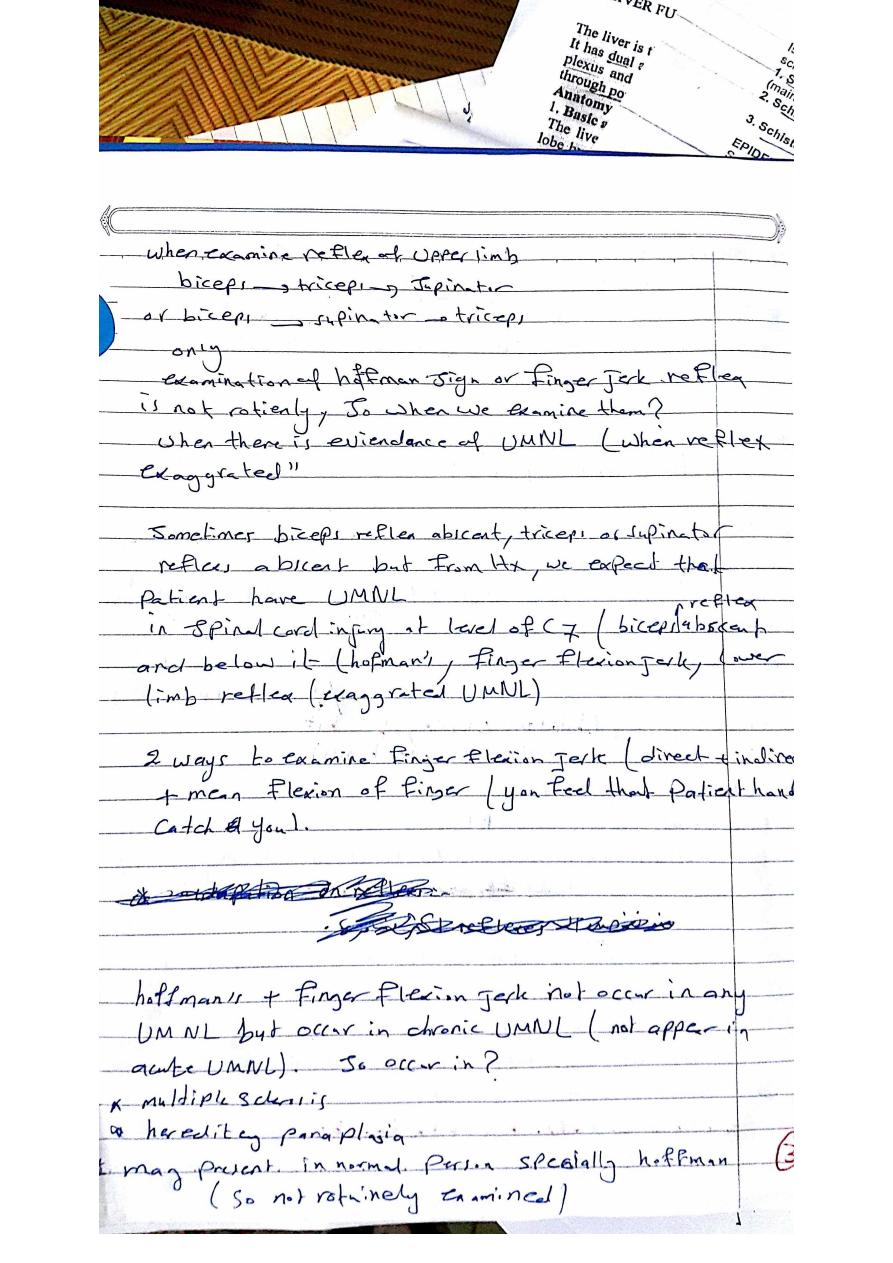 VER FU
The liver is t
It has dual
plexus and
through po
Anatomy
1. Basic
The live
lobe
1. S
(main
2. Sch
3. Schist
EPIDE
when examine reflex of upper limb
biceps → triceps → supinator
or biceps → supinator → triceps
only
examination of hoffman sign or finger jerk reflex
is not rotienly, So when we examine them?
when there is eviendance of UMNL (when reflex
exaggrated"
Sometimes biceps reflex abscent, triceps or supinator
reflexes abscent but from Hx, we expect that
patient have UMNL
in spinal cord injury at level of C7 (biceps reflex abscent
and below it (hofman's, finger flexion jerk, lower
limb reflex (exaggrated UMNL)
2 ways to examine finger flexion jerk (direct + indire
+ mean flexion of finger (you feel that patient hand
catch you).
hoffman's + finger flexion jerk not occur in any
UMNL but occur in chronic UMNL (not appear in
acute UMNL). So occur in?
* multiple sclerosis
* hereditey paraplagia
may present in normal person specially hoffman
(so not rotuinely examined)
3